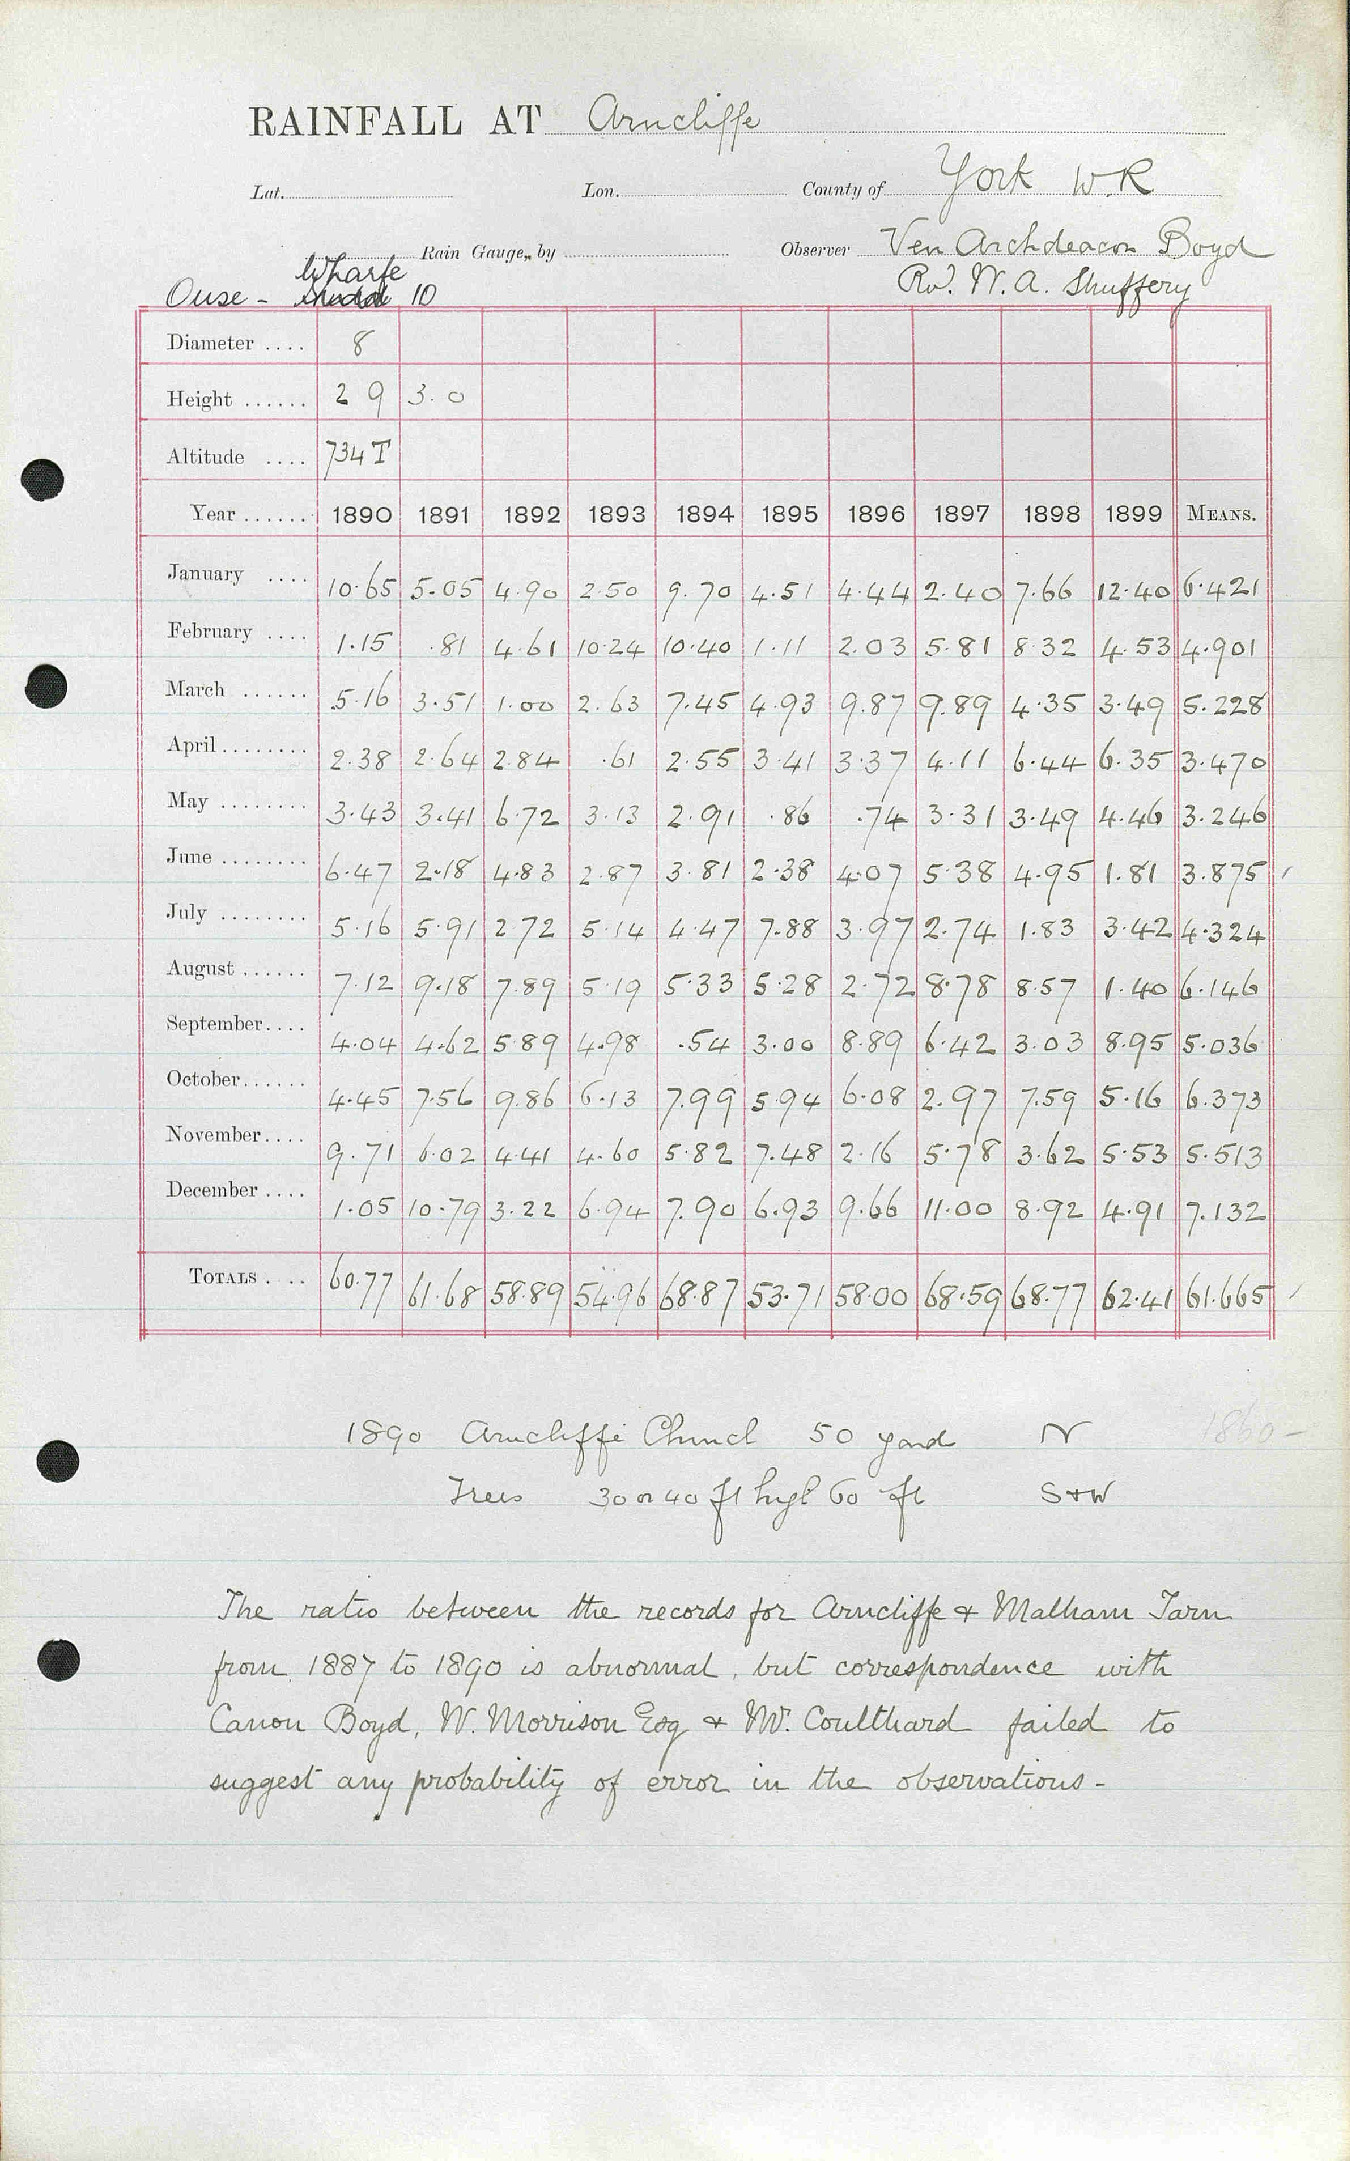 RAINFALL AT Arncliffe
Lat. Lon. County of York W.R
Rain Gauge, by Observer Ven Archdeacon Boyd
Ouse - Wharfe 10 Rev. W. A. Shuffery
Diameter .... 8
Height ...... 2 9 3.0
Altitude .... 734 T
Year ...... 1890 1891 1892 1893 1894 1895 1896 1897 1898 1899 MEANS.
January .... 10.65 5.05 4.90 2.50 9.70 4.51 4.44 2.40 7.66 12.40 6.421
February .... 1.15 .81 4.61 10.24 10.40 1.11 2.03 5.81 8.32 4.53 4.901
March ...... 5.16 3.51 1.00 2.63 7.45 4.93 9.87 9.89 4.35 3.49 5.228
April ........ 2.38 2.64 2.84 .61 2.55 3.41 3.37 4.11 6.44 6.35 3.470
May ........ 3.43 3.41 6.72 3.13 2.91 .86 .74 3.31 3.49 4.46 3.246
June ........ 6.47 2.18 4.83 2.87 3.81 2.38 4.07 5.38 4.95 1.81 3.875
July ........ 5.16 5.91 2.72 5.14 4.47 7.88 3.97 2.74 1.83 3.42 4.324
August ...... 7.12 9.18 7.89 5.19 5.33 5.28 2.72 8.78 8.57 1.40 6.146
September .... 4.04 4.62 5.89 4.98 .54 3.00 8.89 6.42 3.03 8.95 5.036
October ...... 4.45 7.56 9.86 6.13 7.99 5.94 6.08 2.97 7.59 5.16 6.373
November .... 9.71 6.02 4.41 4.60 5.82 7.48 2.16 5.78 3.62 5.53 5.513
December .... 1.05 10.79 3.22 6.94 7.90 6.93 9.66 11.00 8.92 4.91 7.132
TOTALS .... 60.77 61.68 58.89 54.96 68.87 53.71 58.00 68.59 68.77 62.41 61.665
1890 Arncliffe Church 50 yard N 1860-
Trees 30 or 40 ft high 60 ft S+W
The ratio between the records for Arncliffe & Malham Tarn
from 1887 to 1890 is abnormal, but correspondence with
Canon Boyd, W. Morrison Esq & Mr. Coulthard failed to
suggest any probability of error in the observations -